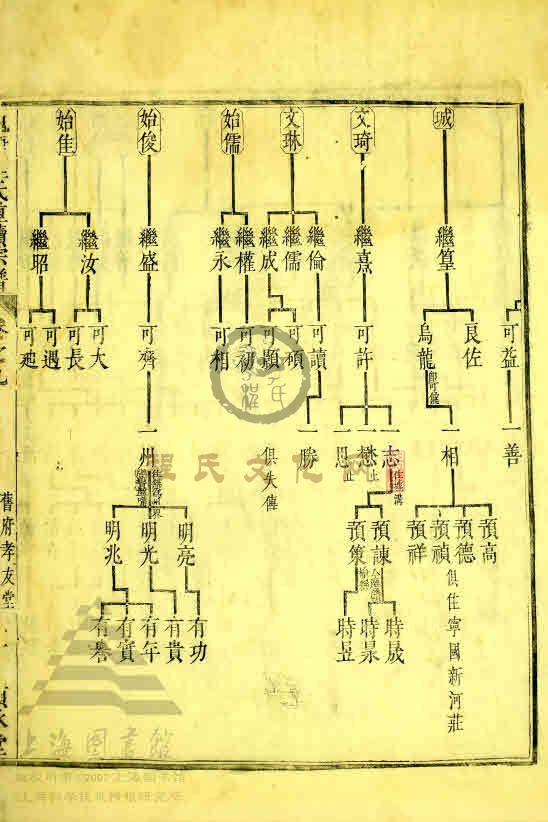 瑊
文琦
文琳
始儒
始俊
始隹
繼篁
繼熹
繼倫
繼儒
繼成
繼權
繼永
繼盛
繼汝
繼昭
可益
良佐
烏龍
可許
可讀
可碩
可顯
可初
可相
可齊
可大
可長
可遇
一善
一相
一志
一懋 止
一思 止
一勝
俱失傳
一州
預高
預德
預禎
預祥
俱住寧國新河莊
預諫
預策
明亮
明光
明兆
時晟
時杲
時昱
有功
有貴
有年
有實
有譽
重續宗譜
舊府孝友堂
程氏文化网
上海图书馆